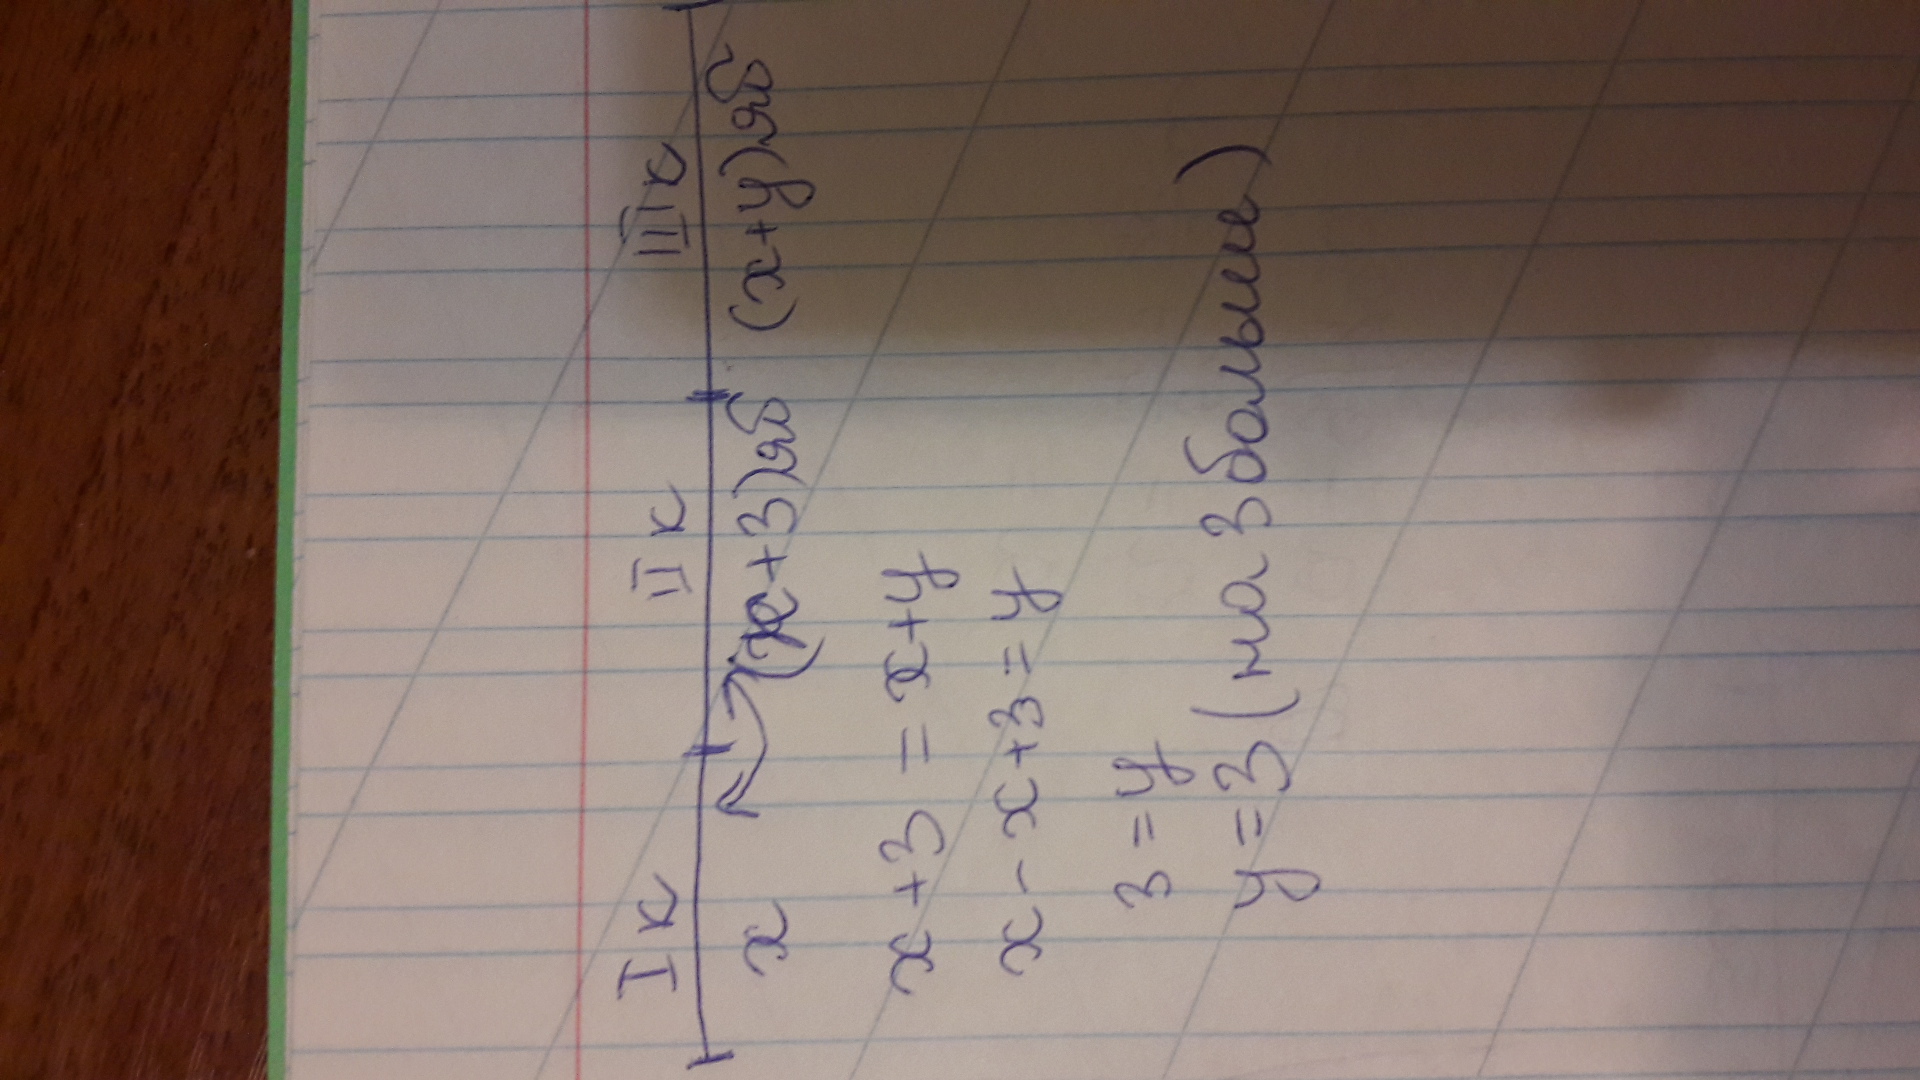 I к II к III к
x (x+3)яб (x+y)яб
x+3=x+y
x-x+3=y
3=y
y=3 (на 3 больше)